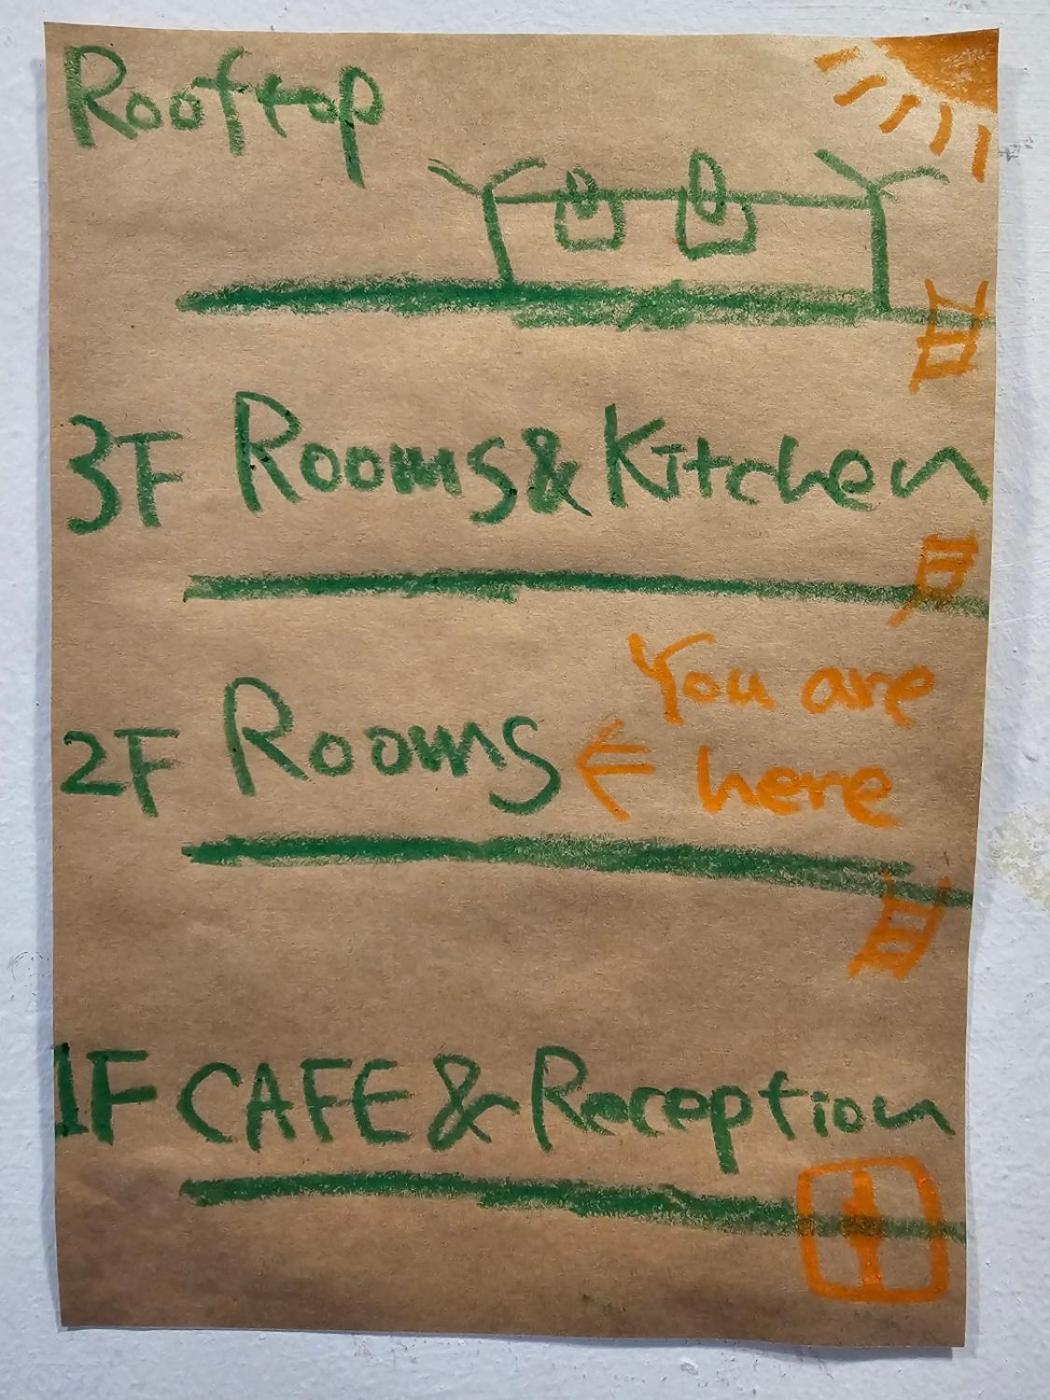 Rooftop
3F Rooms & Kitchen
2F Rooms ← You are
here
1F CAFE & Reception